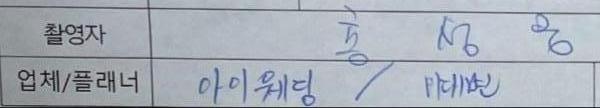 촬영자 홍 성 용
업체/플래너 아이웨딩 /